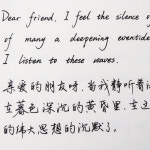 Dear friend, I feel the silence o
of many a deepening eventide
I listen to these waves.
亲爱的朋友呀，当我静听着海
在暮色深沉的黄昏里，在这
的伟大思想的沉默了。